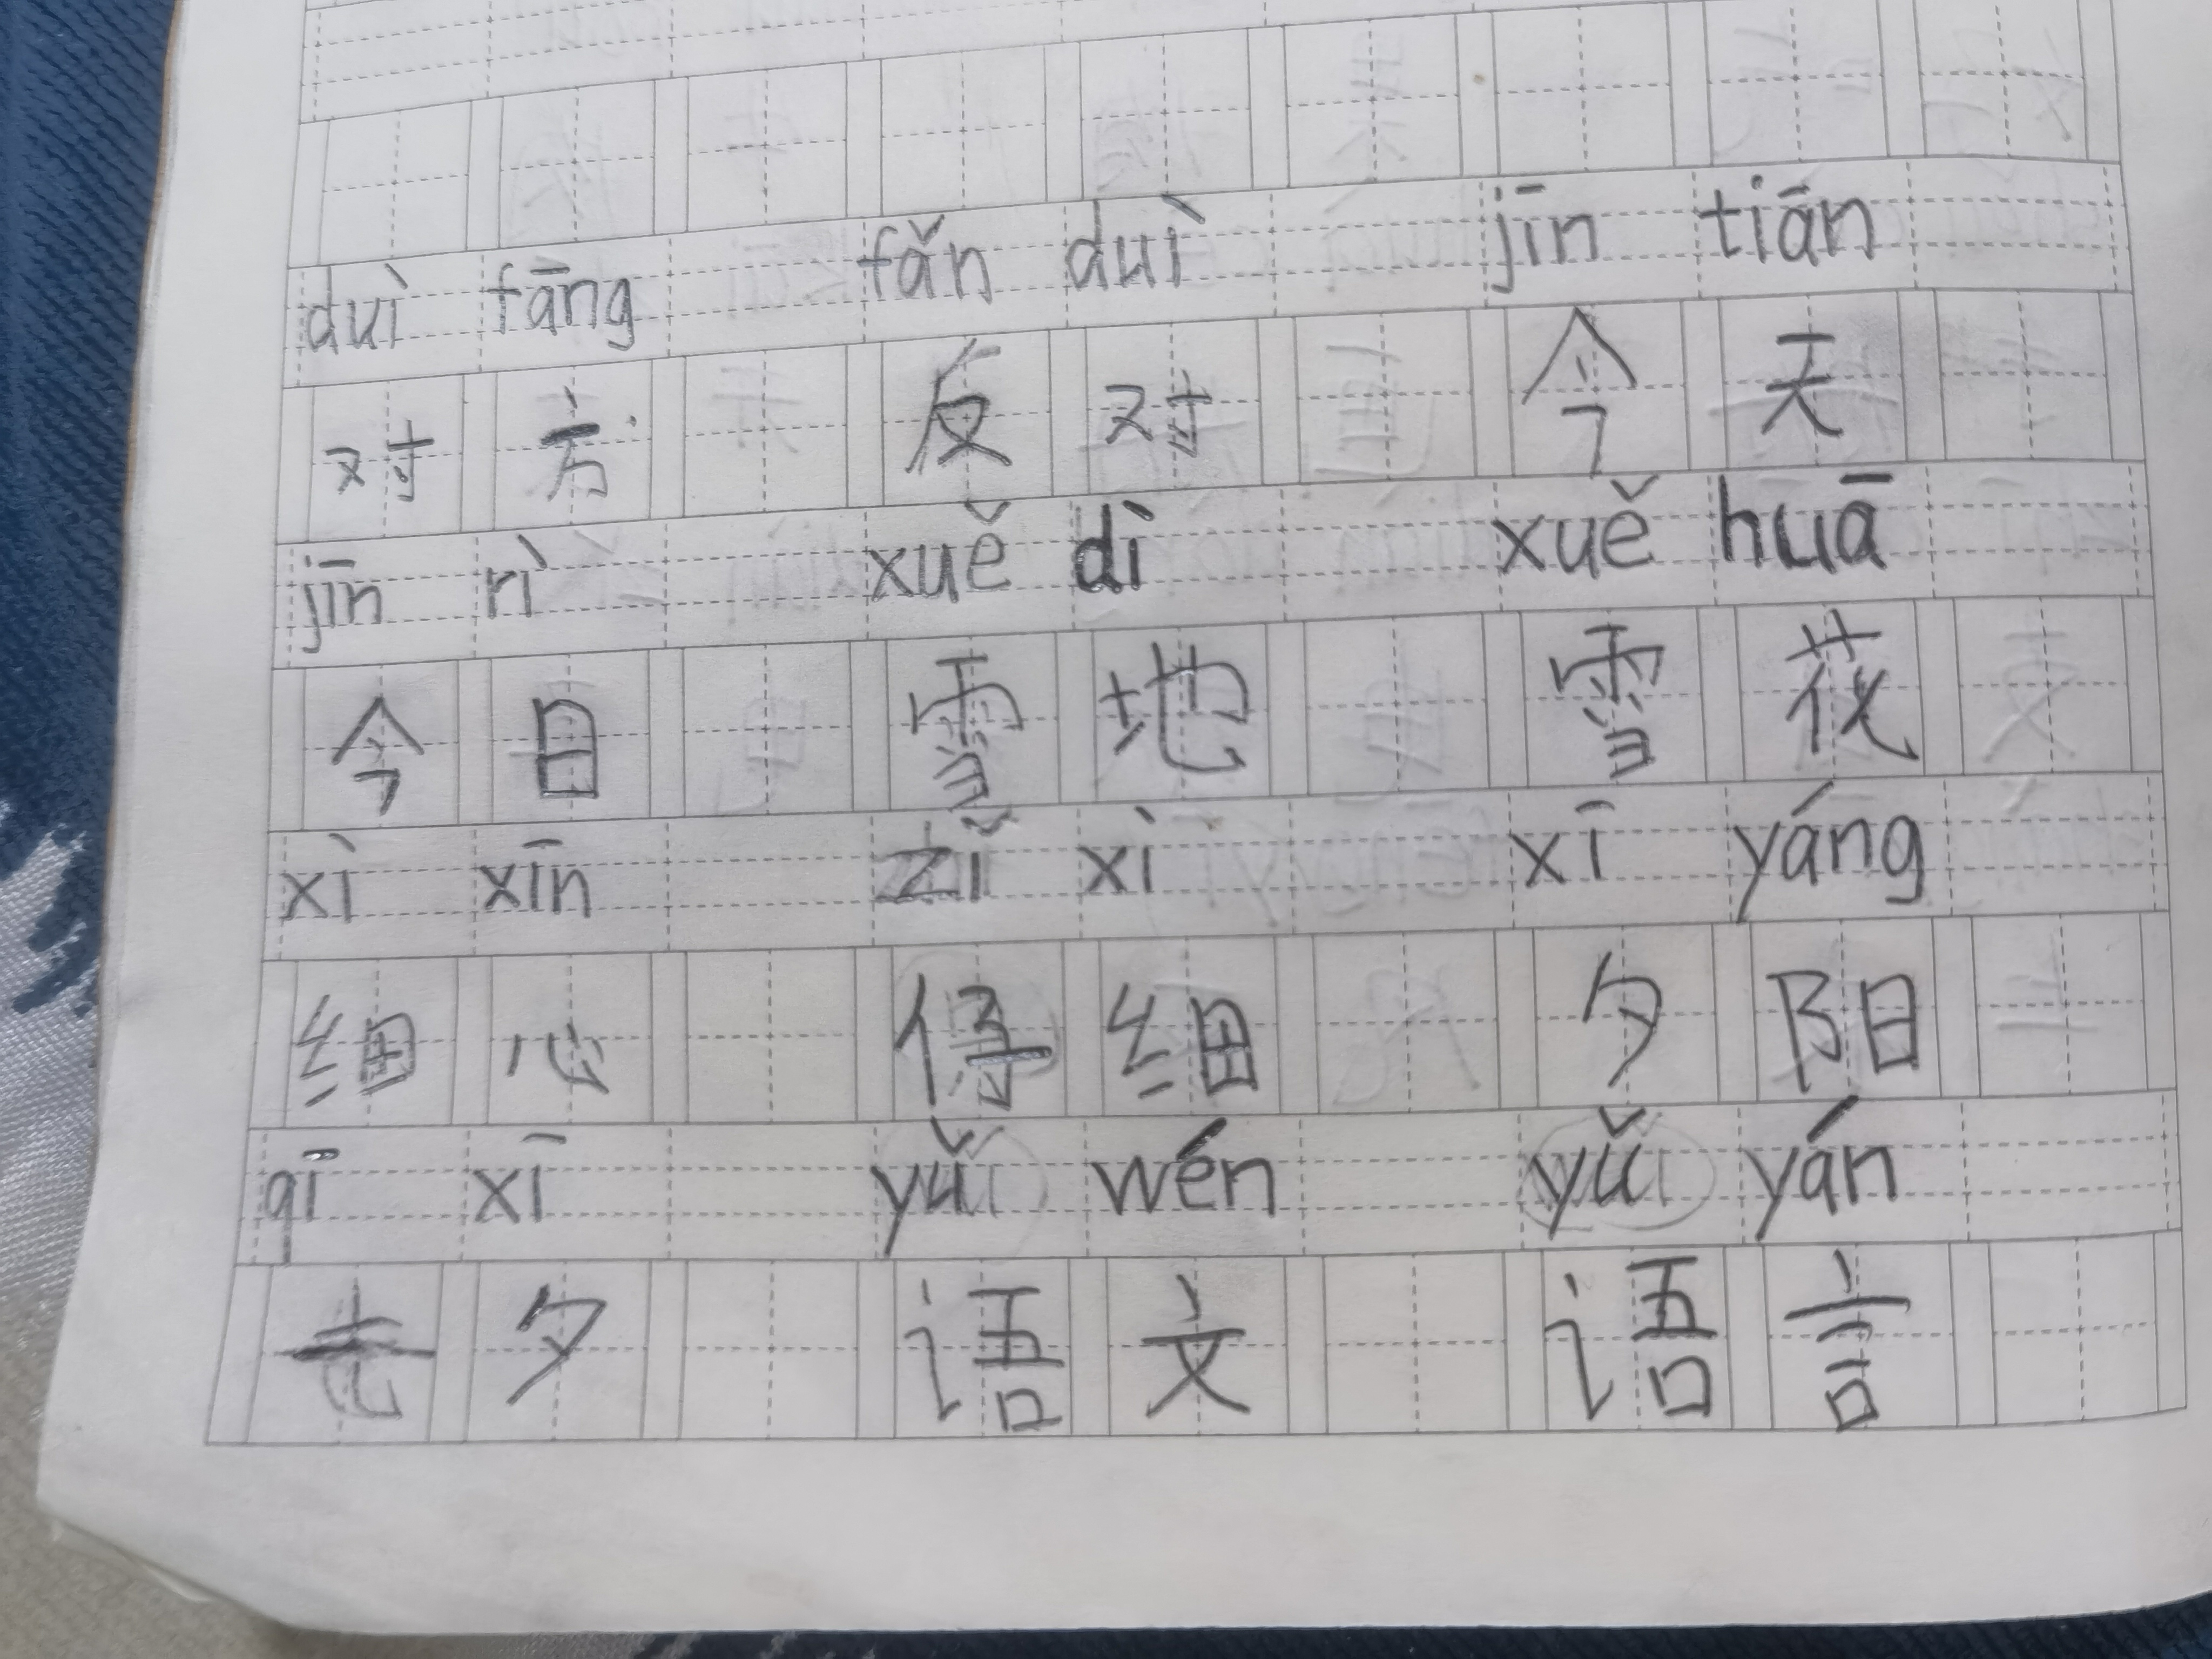 duì fāng fǎn duì jīn tiān
对方 反对 今天
jīn rì xuě dì xuě huā
今日 雪地 雪花
xì xīn zǐ xì xī yáng
细心 仔细 夕阳
qī xī yǔ wén yǔ yán
七夕 语文 语言